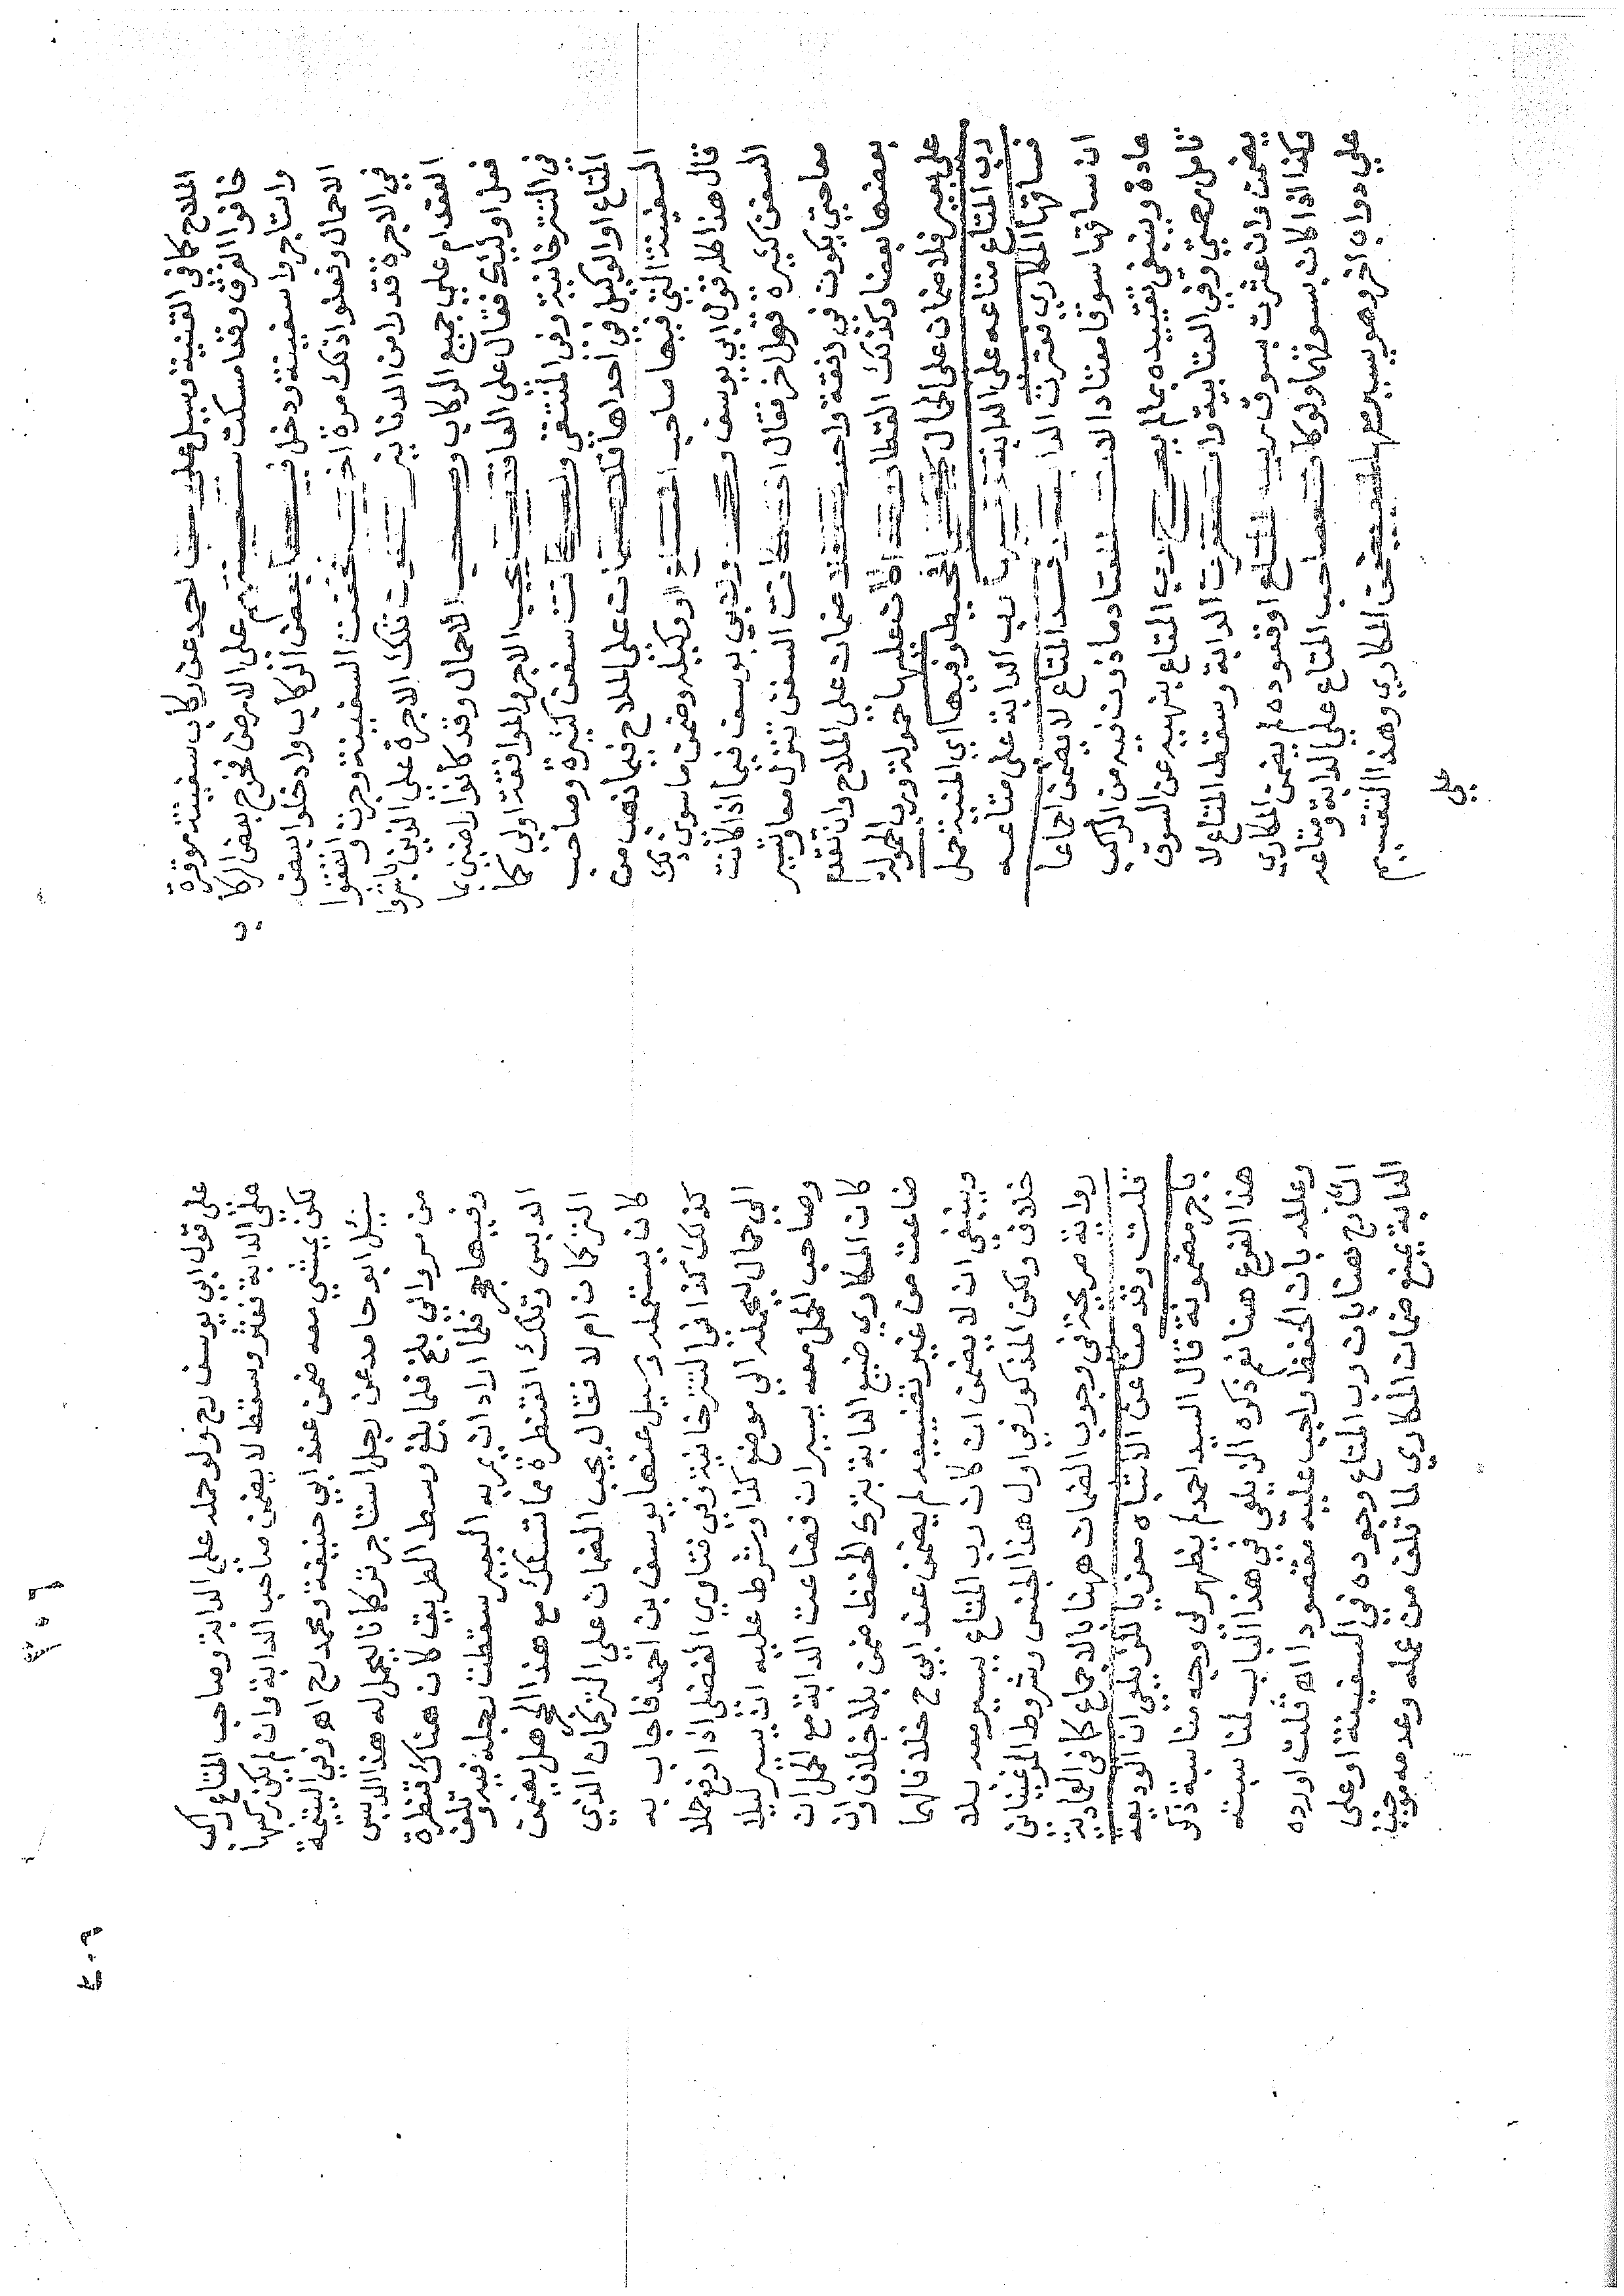 الملاح كما في القنية وسيل علي بن احمد عن ركاب سفينة موقرة
خافوا الغرق وقد امسكت على الارض فخرج بعض الركاب
واستاجروا سفينة ودخل فيها بعض الركاب وادخلوا بعض
الاحمال وفعلوا ذلك مرة اخرى فخفت السفينة وجرت واتفقوا
في الاجرة قدرا من الدنانير تكون تلك الاجرة على الذين باشروا
العقد ام على جميع الركاب واصحاب الاحمال وقد كانوا راضين بما
فعل اوليك فقال على العاقدين يجب الاجر والموافقة اولى كما
في التترخانية وفي المنتقى ولو كانت سفن كثيرة وصاحب
المتاع او الوكيل في احداها فلا ضمان على الملاح فيما ذهب من
السفينة التي فيها صاحب المتاع او وكيله وضمن ما سوى ذلك
قال هذا كله قول ابي يوسف ولابي يوسف فيما اذا كانت
السفن كثيرة قول اخر فقال اذا كانت السفن تنزل معا وتسير
معا حتى يكون في رفقة واحدة فلا ضمان على الملاح وان تقدم
بعضها بعضا وكذلك القطار اذا كان عليها حمولة ورب الحمولة
على بعير فلا ضمان على الحمال كما في المحيط وفيها اي المنية حمل
رب المتاع متاعه على الدابة وركبها رب الدابة على متاعه
فساقها المكاري فعثرت الدابة وفسد المتاع لا يضمن اجماعا
ان ساقها سوقا معتادا لان المعتاد ماذون فيه من الراكب
عادة وينبغي تقييده بما لم يصرح رب المتاع بنهيه عن السوق
تامل مرحمتي وفي العتابية وان عثرت الدابة وسقط المتاع لا
يضمن وان عثرت بسوق رب المتاع او قوده لم يضمن المكاري
وكذا اذا كان بسوقهما ولو كان صاحب المتاع على الدابة ومتاعه
علي دواب اخر وهو يسير معها لم يضمن المكاري وهذا التقسيم
علي
على قول ابي يوسف رح ولو حمله علي الدابة وصاحب المتاع راكب
علي الدابة فعثر وسقط لا يضمن صاحب الدابة وان لم يكن راكبها
لكن يمشي معه ضمن عند ابي حنيفة ومحمد رح اه وفي اليتيمة
سيل ابو حامد عن رجل استاجر تركمانا ليحمل له هذا الدبس
من مرو الى بلخ فلما بلغ وسط الطريق كان هناك قنطرة
وفيها حجر فلما اراد ان يمر به البعير سقطت رجله فيه وتلف
الدبس وتلك القنطرة مما تسلك مع هذا الحجر هل يضمن
التركمان ام لا فقال يجب الضمان علي التركمان الذي
كان يستعمله وسيل عنها يوسف بن احمد فاجاب به
كذلك كذا في التترخانية وفي فتاوي الفضلي اذا دفع حملا
الى حمال ليحمله الى موضع كذا وشرط عليه ان يسير ليلا
وصاحب الحمل معه يسيران فضاعت الدابة مع الحمل ان
كان المكاري ضيع الدابة بترك الحفظ ضمن بلا خلاف وان
ضاعت من غير تضييعه لم يضمن عند ابي ح خلافا لهما
وينبغي ان لا يضمن ان كان رب المتاع يسير معه بلا
خلاف ولكن المذكور في اول هذا الجنس وشروط المرغيناني
رواية صريحة في وجوب الضمان ههنا بالاجماع كما في العمادية
قلت وقد منا عن الاشباه معزيا للزيلعي ان الوديعة
باجر مضمونة قال السيد احمد لم يظهر لي وجه مناسبة ذكر
هذا الفرع هنا نعم ذكره الزيلعي في هذا الباب لمناسبة
وعلله بان الحفظ واجب عليه مقصودا اه قلت اورده
الشارح هنا بان رب المتاع وجوده في السفينة او على
الدابة يمنع ضمان المكاري لما تلف من عمله وعدمه موجبا
٢٠٦
٤٠٩